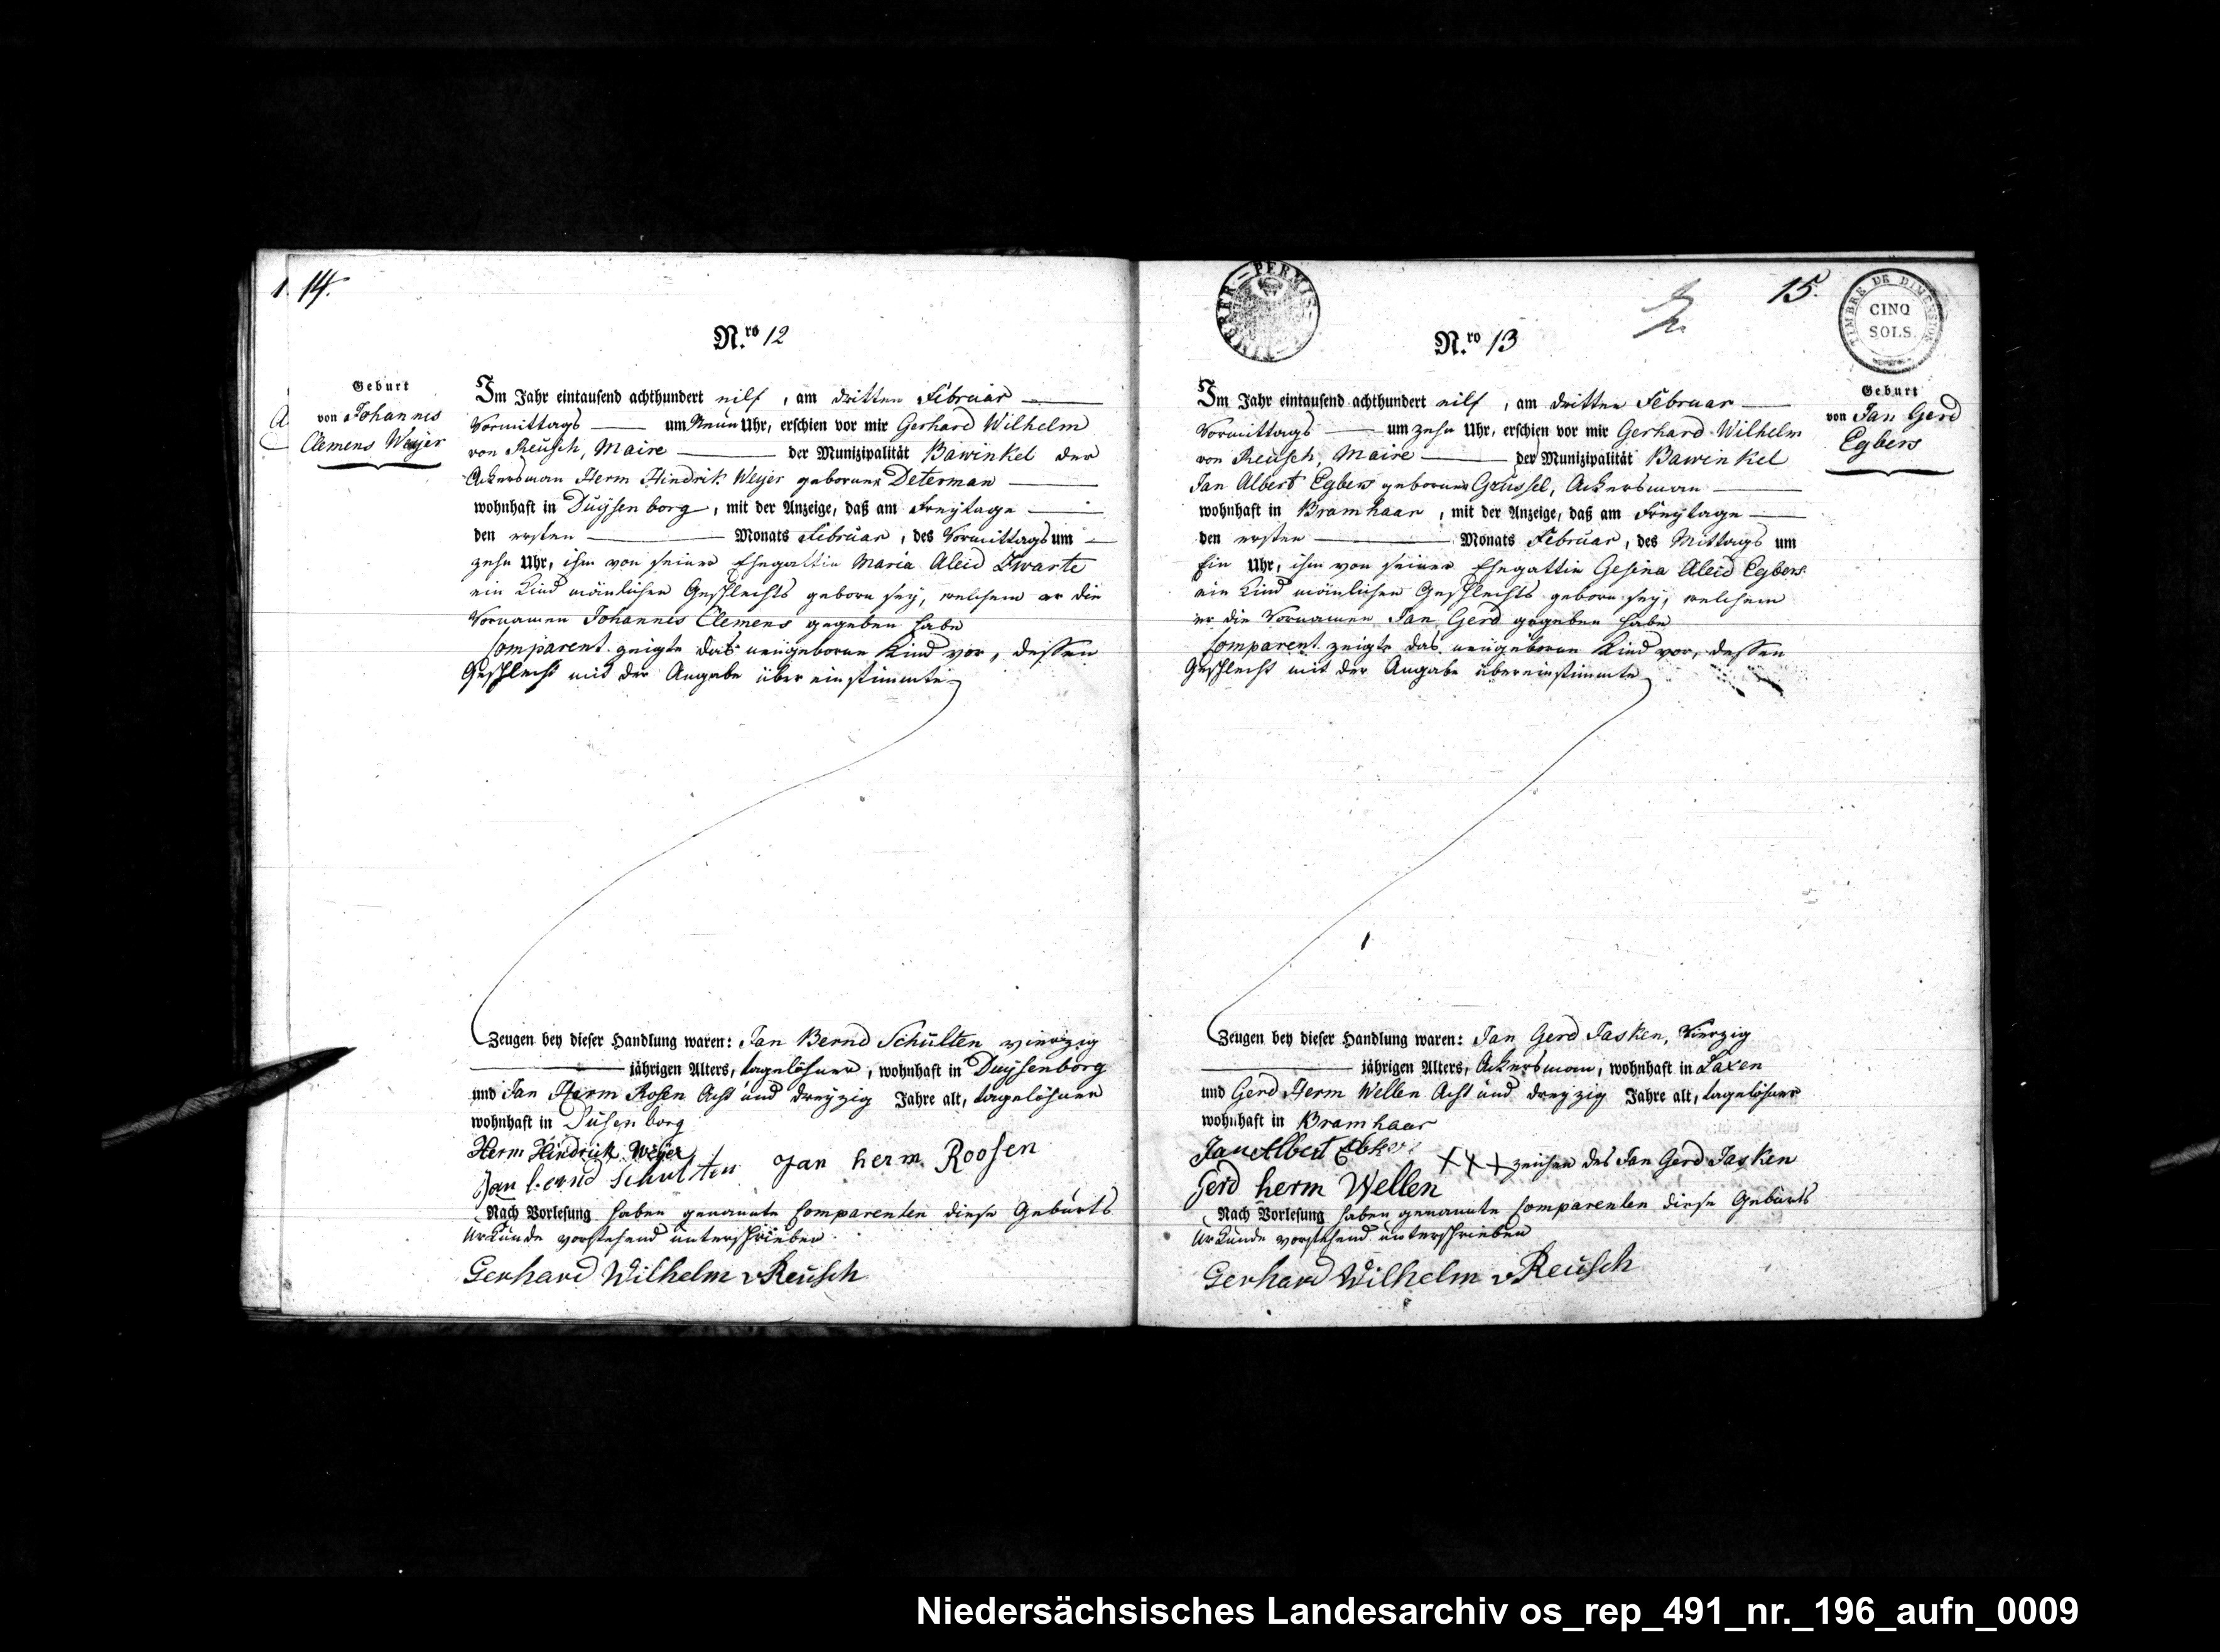 1. 14.
N.ro 12
Geburt
von Johannis
Clemens Weyer
Im Jahr eintausend achthundert eilf, am dritten Februar
Vormittags um Neun Uhr, erschien vor mir Gerhard Wilhelm
von Reusch, Maire der Munizipalität Bawinkel der
Ackersman Herm Hindrik Weyer geborner Determan
wohnhaft in Duysenborg, mit der Anzeige, daß am Freytage
den ersten Monats Februar, des Vormittags um
zehn Uhr, ihm von seiner Ehegattin Maria Aleid Zwarte
ein Kind mänlichen Geschlechts geborn sey, welchem er die
Vornamen Johannes Clemens gegeben habe
Comparent zeigte das neugeborne Kind vor, dessen
Geschlecht mit der Angabe übereinstimmte
Zeugen bey dieser Handlung waren: Jan Bernd Schulten vierzig
jährigen Alters, tagelöhner, wohnhaft in Duysenborg
und Jan Herm Rosen Acht und dreyzig Jahre alt, tagelöhner
wohnhaft in Dusenborg
Herm Hindrick Weyer
Jan bernd Schulten Jan herm Roosen
Nach Vorlesung haben genannte Comparenten diese Geburts
Urkunde vorstehend unterschrieben
Gerhard Wilhelm v Reusch
PERMIS
15.
TIMBRE DE DIMENSION
CINQ
SOLS.
N.ro 13
Geburt
von Jan Gerd
Egbers
Im Jahr eintausend achthundert eilf, am dritten Februar
Vormittags um zehn Uhr, erschien vor mir Gerhard Wilhelm
von Reusch, Maire der Munizipalität Bawinkel
Jan Albert Egbers geborner Grüssel, Ackersman
wohnhaft in Bramhaar, mit der Anzeige, daß am Freytage
den ersten Monats Februar, des Mittags um
Ein Uhr, ihm von seiner Ehegattin Gesina Aleid Egbers
ein Kind mänlichen Geschlechts geborn sey, welchem
er die Vornamen Jan Gerd gegeben habe
Comparent zeigte das neugeborne Kind vor, dessen
Geschlecht mit der Angabe übereinstimmte
Zeugen bey dieser Handlung waren: Jan Gerd Jasken, Vierzig
jährigen Alters, Ackersman, wohnhaft in Laxen
und Gerd Herm Wellen Acht und dreyzig Jahre alt, tagelöhner
wohnhaft in Bramhaar
Jan Albert
XXX zeichen des Jan Gerd Jasken
Gerd herm Wellen
Nach Vorlesung haben genannte Comparenten diese Geburts
Urkunde vorstehend unterschrieben
Gerhard Wilhelm v Reusch
Niedersächsisches Landesarchiv os_rep_491_nr._196_aufn_0009